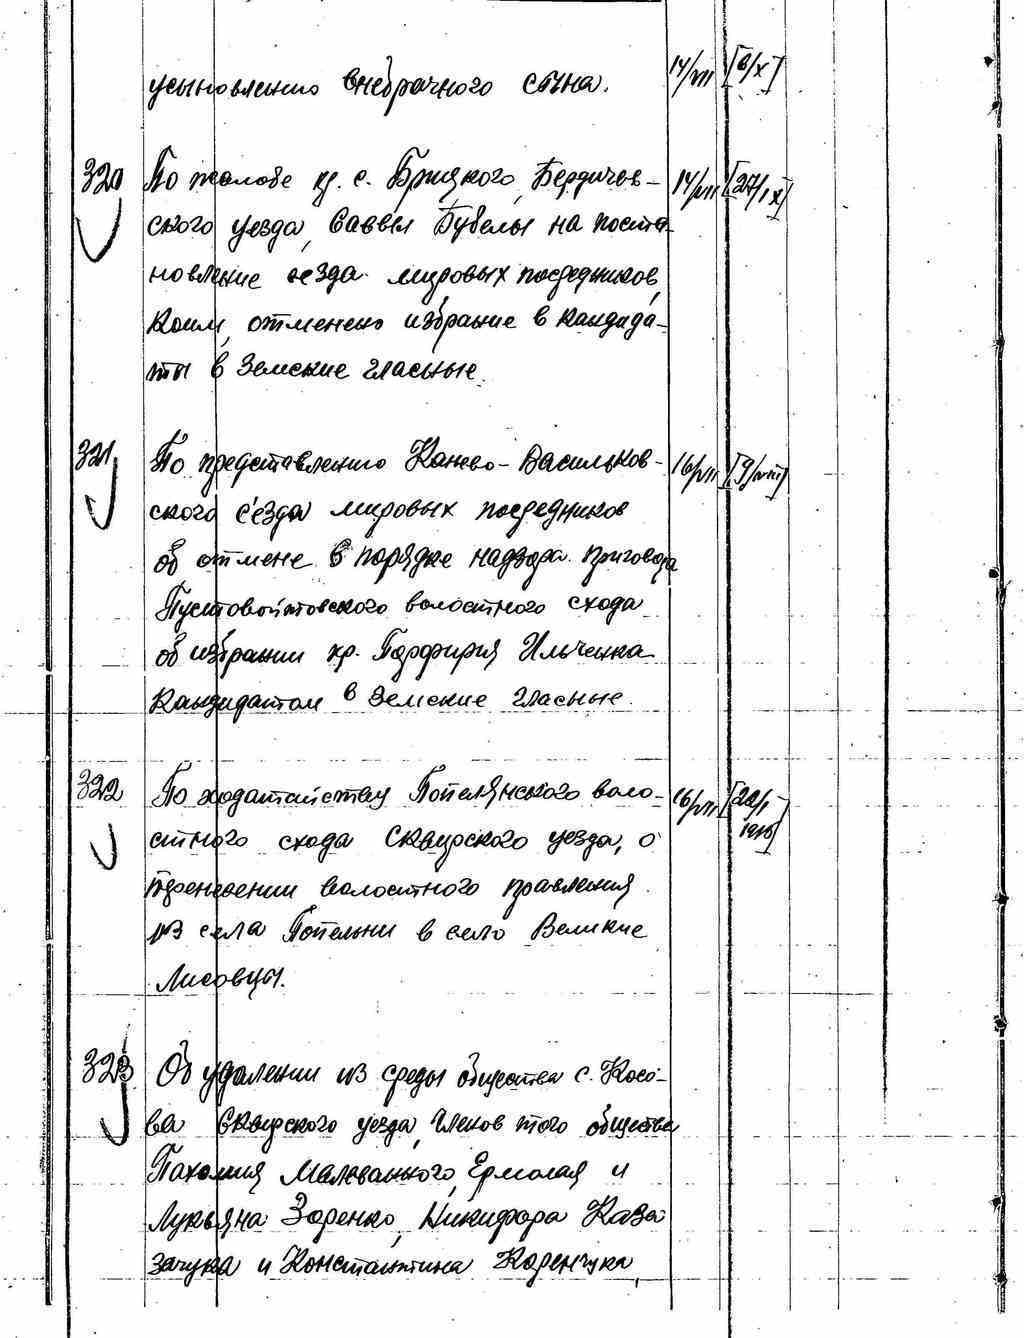 усыновлению внебрачного сына. 14/VII [6/X]
320 По жалобе кр. с. Брицкого, Бердичев- 14/VII [27/IX]
ского уезда, Саввы Бубелы на поста-
новление сезда мировых посредников,
коим, отменено избрание в кандида-
ты в Земские гласные.
321 По представлению Канево-Васильков- 16/VII [9/VIII]
ского с'езда мировых посредников
об отмене в порядке надзора приговора
Пустовойтовского волостного схода
об избрании кр. Порфирия Ильченка
Кандидатом в Земские гласные.
322 По ходатайству Попелянского воло- 16/VII [22/I
стного схода Сквирского уезда, о 1916]
перенесении волостного правления
из села Попельни в село Великие
Лисовцы.
323 Об удалении из среды общества с. Косо-
ва Сквирского уезда, членов того общества
Пахомия Малеванного, Ермолая и
Лукьяна Зоренко, Никифора Каза
зачука и Константина Коренчука